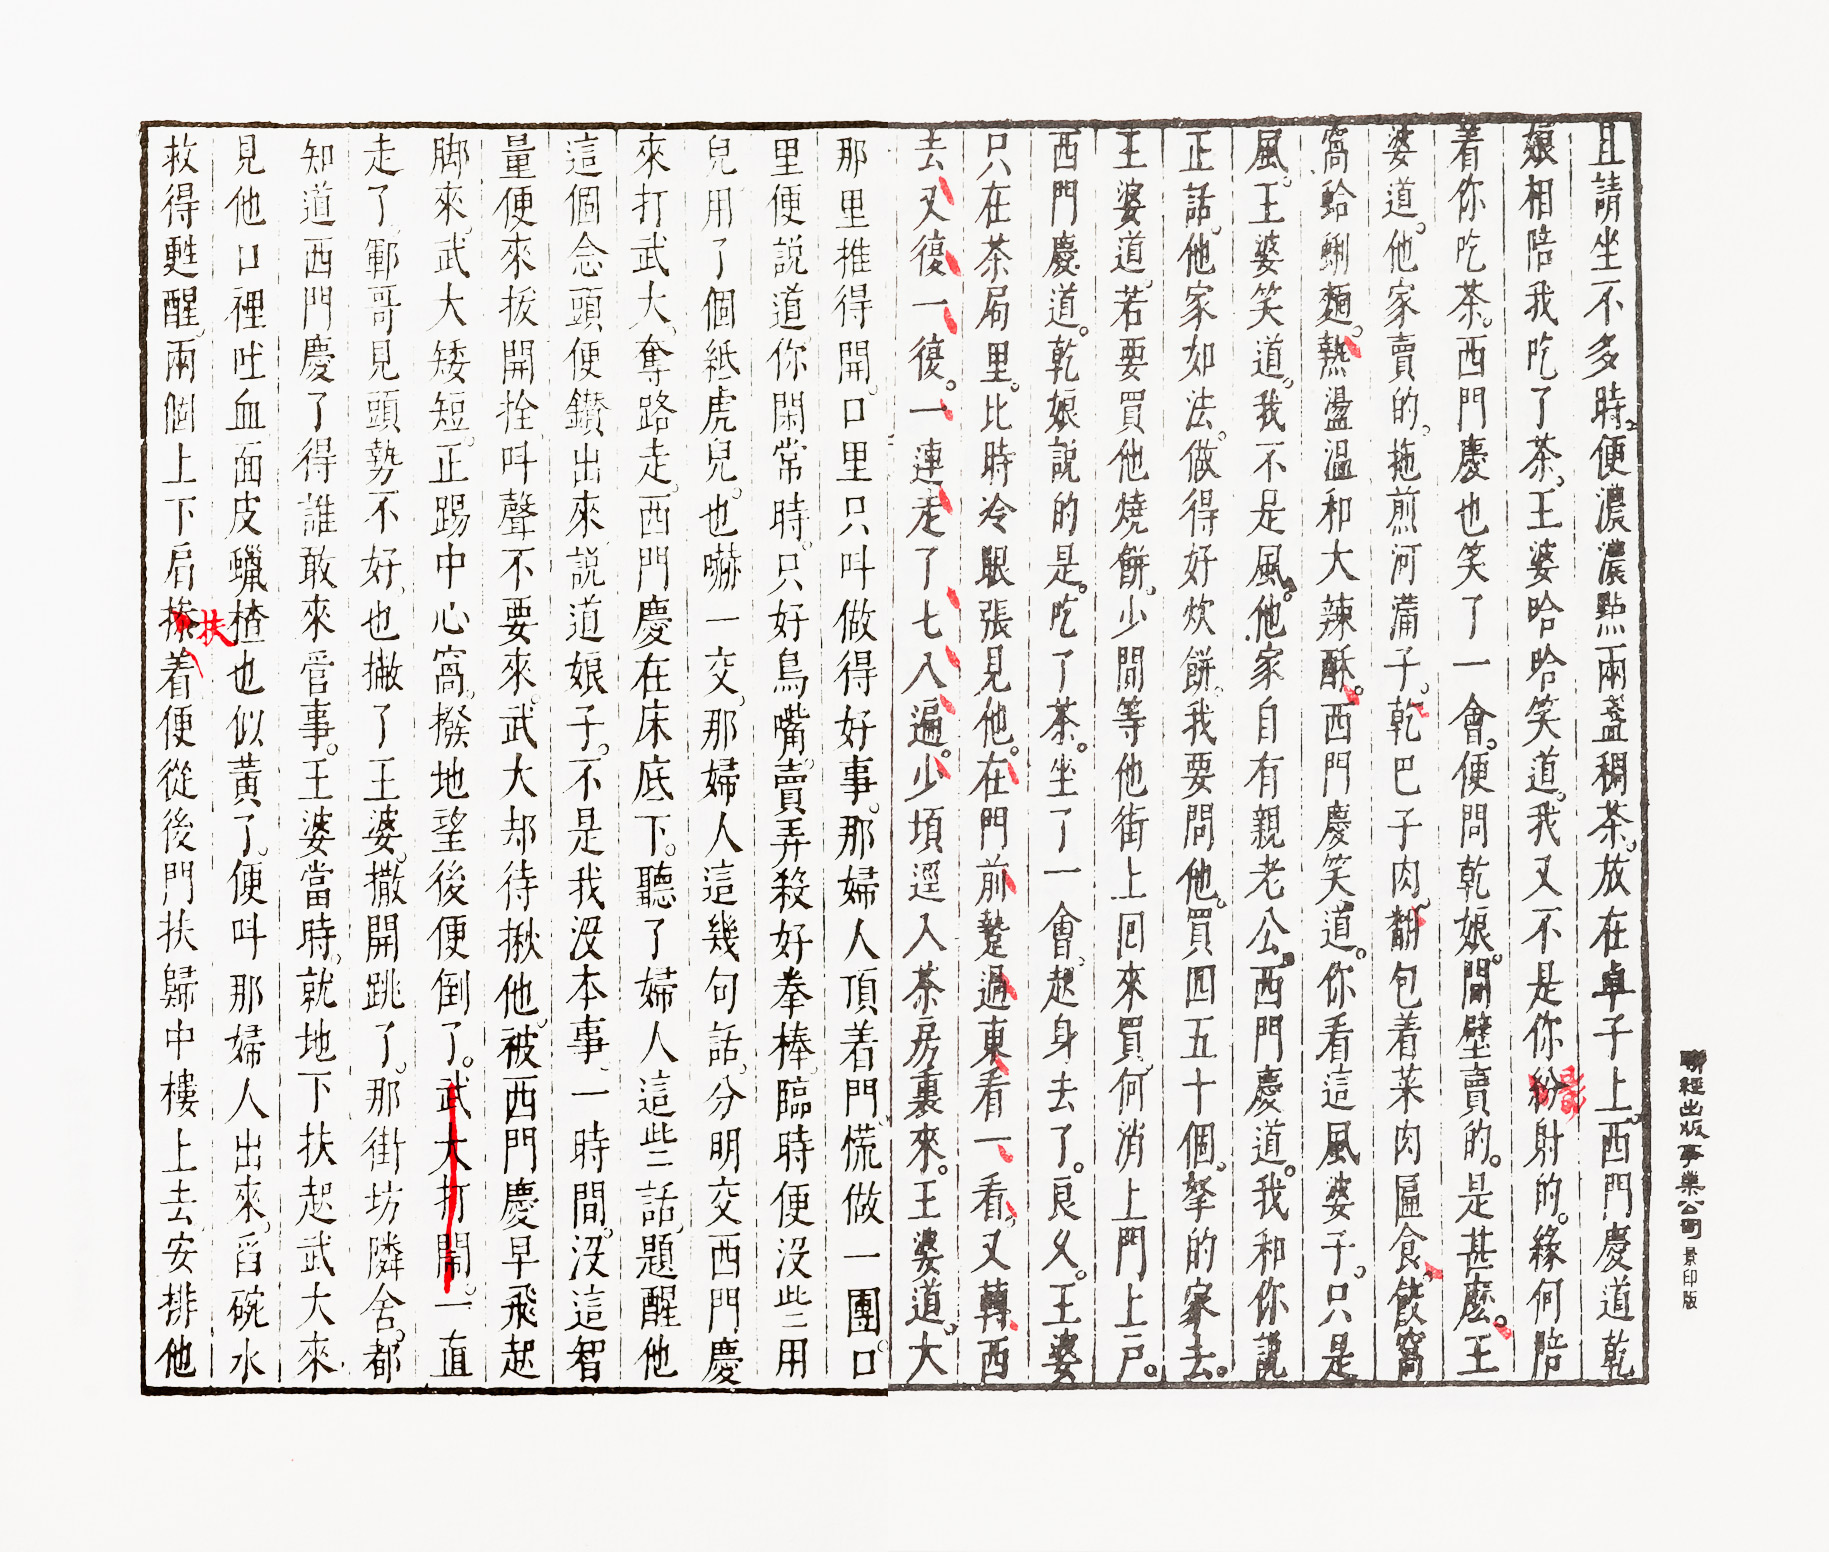 且請坐不多時。便濃濃點兩盞稠茶。放在卓子上。西門慶道乾
娘相陪我吃了茶。王婆哈哈笑道。我又不是你紛射的。緣何陪
影
着你吃茶。西門慶也笑了一會。便問乾娘。間壁賣的。是甚麽。王
婆道。他家賣的。拖煎河漏子。乾巴子肉。翻包着菜肉匾食。餃窩
窩蛤蜊麵。熱盪溫和大辣酥。西門慶笑道。你看這風婆子。只是
風。王婆笑道。我不是風。他家自有親老公。西門慶道。我和你說
正話。他家如法。做得好炊餅。我要問他。買四五十個。拏的家去。
王婆道。若要買他燒餅。少間等他街上回來買。何消上門上戶。
西門慶道。乾娘說的是。吃了茶。坐了一會。起身去了。良久。王婆
只在茶局里。比時冷眼張見他。在門前踅過東看一看。又轉西
去又復一復。一連走了七八遍。少頃逕入茶房裏來。王婆道。大
那里推得開。口里只叫做得好事。那婦人頂着門。慌做一團。口
里便説道。你閑常時。只好鳥嘴。賣弄殺好拳棒。臨時便沒些用
兒用了個紙虎兒。也嚇一交。那婦人這幾句話。分明交西門慶
來打武大。奪路走。西門慶在床底下。聽了婦人這些話。題醒他
這個念頭便鑽出來。説道娘子。不是我没本事。一時間。没這智
量便來拔開拴。叫聲不要來。武大却待揪他。被西門慶早飛起
脚來。武大矮短。正踢中心窩。撥地望後便倒了。武大打鬧。一直
走了。鄆哥見頭勢不好。也撇了王婆。撒開跳了。那街坊隣舍。都
知道西門慶了得誰敢來管事。王婆當時。就地下扶起武大來。
見他口裡吐血。面皮蠟楂也似黃了。便叫那婦人出來。舀碗水
扶
救得甦醒。兩個上下肩摻着。便從後門扶歸中樓上去。安排他
聯經出版事業公司 景印版